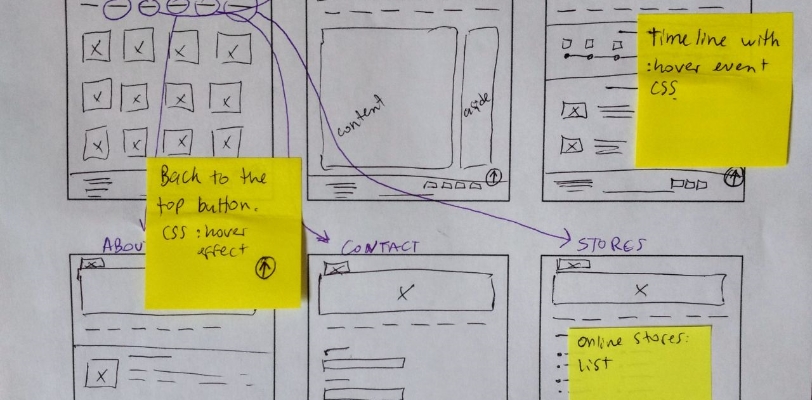 content
aside
Timeline with
:hover event
CSS
Back to the
top button.
CSS :hover
effect
ABOU
CONTACT
STORES
online stores:
list